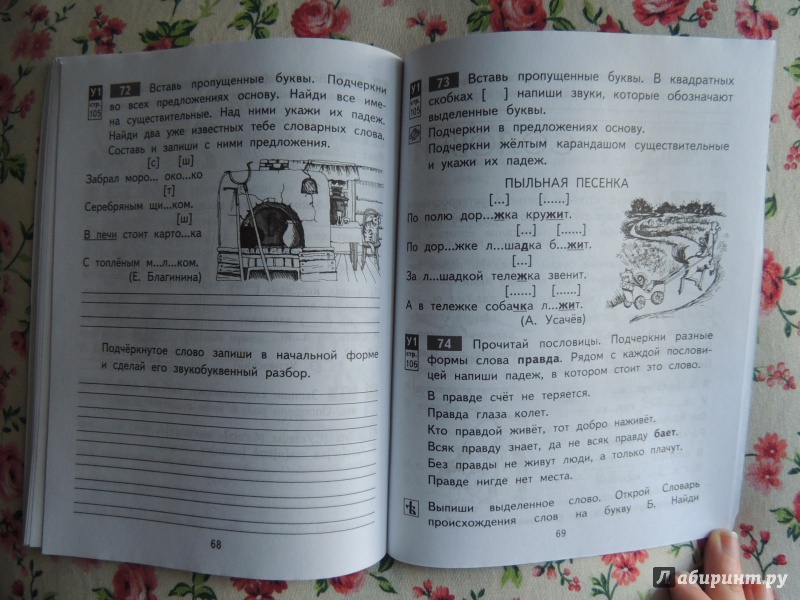 У1
стр.
105
72 Вставь пропущенные буквы. Подчеркни
во всех предложениях основу. Найди все име-
на существительные. Над ними укажи их падеж.
Найди два уже известных тебе словарных слова.
Составь и запиши с ними предложения.
[с] [ш]
Забрал моро... око...ко
[т]
Серебряным щи...ком.
[ш]
В печи стоит карто...ка
С топлёным м...л...ком.
(Е. Благинина)
Подчёркнутое слово запиши в начальной форме
и сделай его звукобуквенный разбор.
68
У1
стр.
105
73 Вставь пропущенные буквы. В квадратных
скобках [ ] напиши звуки, которые обозначают
выделенные буквы.
Подчеркни в предложениях основу.
Подчеркни жёлтым карандашом существительные
и укажи их падеж.
ПЫЛЬНАЯ ПЕСЕНКА
[...] [......]
По полю дор...жка кружит.
[...] [......]
По дор...жке л...шадка б...жит.
[...]
За л...шадкой тележка звенит.
[......] [......]
А в тележке собачка л...жит.
(А. Усачёв)
У1
стр.
106
74 Прочитай пословицы. Подчеркни разные
формы слова правда. Рядом с каждой послови-
цей напиши падеж, в котором стоит это слово.
В правде счёт не теряется.
Правда глаза колет.
Кто правдой живёт, тот добро наживёт.
Всяк правду знает, да не всяк правду бает.
Без правды не живут люди, а только плачут.
Правде нигде нет места.
Выпиши выделенное слово. Открой Словарь
происхождения слов на букву Б. Найди
69
Лабиринт.ру